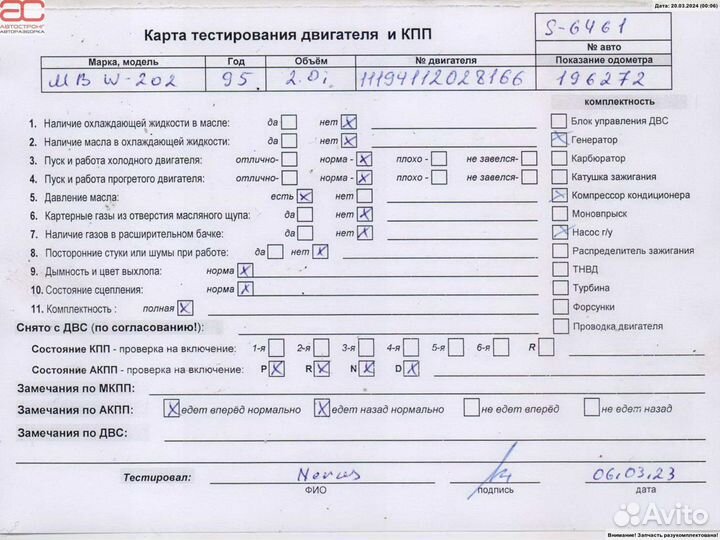 Дата: 20.03.2024 (00:06)
АС
АВТОСТРОНГ
АВТОРАЗБОРКА
Карта тестирования двигателя и КПП
S-6461
№ авто
Марка, модель Год Объём № двигателя Показание одометра
МВ W-202 95 2.0i 11194112028166 196272
комплектность
1. Наличие охлаждающей жидкости в масле: да нет X
Блок управления ДВС
2. Наличие масла в охлаждающей жидкости: да нет X
X Генератор
3. Пуск и работа холодного двигателя: отлично- норма - X плохо - не завелся-
Карбюратор
4. Пуск и работа прогретого двигателя: отлично- норма - X плохо - не завелся-
Катушка зажигания
5. Давление масла: есть X нет
X Компрессор кондиционера
6. Картерные газы из отверстия масляного щупа: да нет X
Моновпрыск
7. Наличие газов в расширительном бачке: да нет X
X Насос г/у
8. Посторонние стуки или шумы при работе: да нет X
Распределитель зажигания
9. Дымность и цвет выхлопа: норма X
ТНВД
10. Состояние сцепления: норма X
Турбина
11. Комплектность : полная X
Форсунки
Снято с ДВС (по согласованию!):
Проводка двигателя
Состояние КПП - проверка на включение: 1-я 2-я 3-я 4-я 5-я 6-я R
Состояние АКПП - проверка на включение: P X R X N X D X
Замечания по МКПП:
Замечания по АКПП: X едет вперёд нормально X едет назад нормально не едет вперёд не едет назад
Замечания по ДВС:
Тестировал: 06.03.23
ФИО подпись дата
Avito
Внимание! Запчасть разукомплектована!